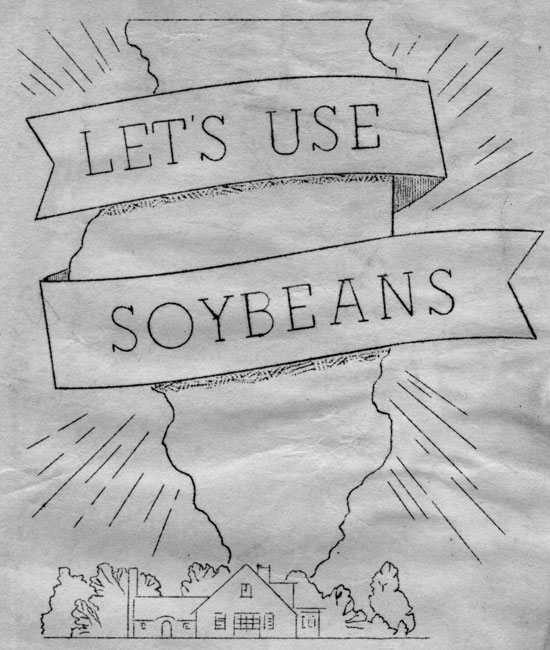 LET'S USE
SOYBEANS